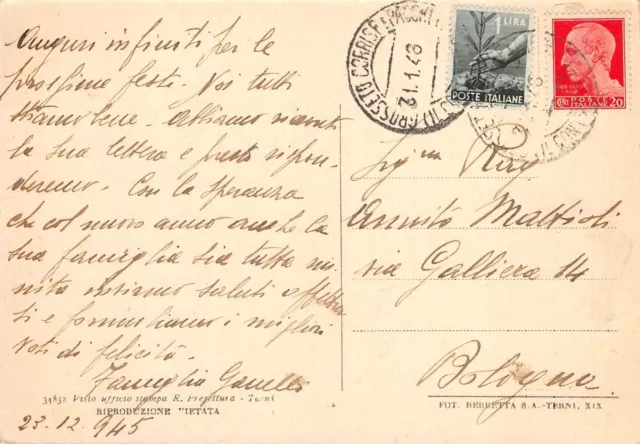 Auguri infiniti per le
prossime feste. Noi tutti
stiamo bene. Abbiamo ricevuto
la sua lettera e presto rispon-
deremo. Con la speranza
che col nuovo anno anche la
sua famiglia sia tutta riu-
nita inviamo saluti affettuo-
si e formuliamo i migliori
voti di felicità.
Famiglia
34832 Visto ufficio stampa R. Prefettura - Terni
RIPRODUZIONE VIETATA
23.12.945
GROSSETO CORRISP. PACCHI
1 LIRA
POSTE ITALIANE
CENT POSTE 20
Sig.na Rag.
Annita Mattioli
via Galliera 14
Bologna
FOT. BERRETTA S.A.-TERNI, XIX